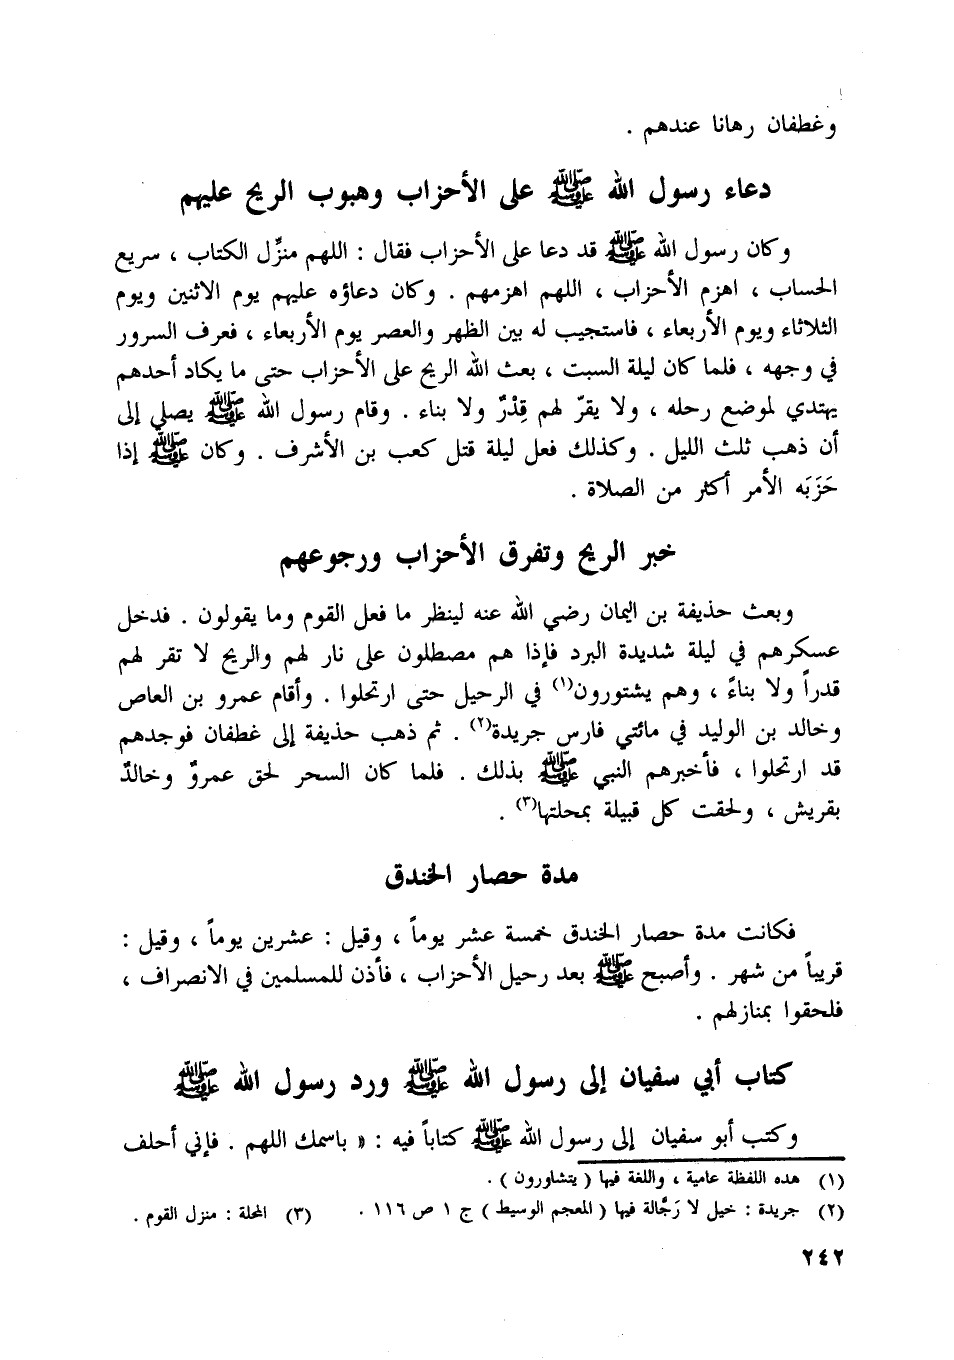 وغطفان رهانا عندهم .
دعاء رسول الله ﷺ على الأحزاب وهبوب الريح عليهم
وكان رسول الله ﷺ قد دعا على الأحزاب فقال : اللهم منزِّل الكتاب ، سريع
الحساب ، اهزم الأحزاب ، اللهم اهزمهم . وكان دعاؤه عليهم يوم الاثنين ويوم
الثلاثاء ويوم الأربعاء ، فاستجيب له بين الظهر والعصر يوم الأربعاء ، فعرف السرور
في وجهه ، فلما كان ليلة السبت ، بعث الله الريح على الأحزاب حتى ما يكاد أحدهم
يهتدي لموضع رحله ، ولا يقرّ لهم قِدْرٌ ولا بناء . وقام رسول الله ﷺ يصلي إلى
أن ذهب ثلث الليل . وكذلك فعل ليلة قتل كعب بن الأشرف . وكان ﷺ إذا
حَزَبَه الأمر أكثر من الصلاة .
خبر الريح وتفرق الأحزاب ورجوعهم
وبعث حذيفة بن اليمان رضي الله عنه لينظر ما فعل القوم وما يقولون . فدخل
عسكرهم في ليلة شديدة البرد فإذا هم مصطلون على نار لهم والريح لا تقر لهم
قدراً ولا بناءً ، وهم يشتورون(١) في الرحيل حتى ارتحلوا . وأقام عمرو بن العاص
وخالد بن الوليد في مائتي فارس جريدة(٢) . ثم ذهب حذيفة إلى غطفان فوجدهم
قد ارتحلوا ، فأخبرهم النبي ﷺ بذلك . فلما كان السحر لحق عمروٌ وخالدٌ
بقريش ، ولحقت كل قبيلة بمحلتها(٣) .
مدة حصار الخندق
فكانت مدة حصار الخندق خمسة عشر يوماً ، وقيل : عشرين يوماً ، وقيل :
قريباً من شهر . وأصبح ﷺ بعد رحيل الأحزاب ، فأذن للمسلمين في الانصراف ،
فلحقوا بمنازلهم .
كتاب أبي سفيان إلى رسول الله ﷺ ورد رسول الله ﷺ
وكتب أبو سفيان إلى رسول الله ﷺ كتاباً فيه : « باسمك اللهم . فإني أحلف
(١) هذه اللفظة عامية ، واللغة فيها ( يتشاورون ) .
(٢) جريدة : خيل لا رَجَّالة فيها ( المعجم الوسيط ) ج ١ ص ١١٦ . (٣) المحلة : منزل القوم .
٢٤٢